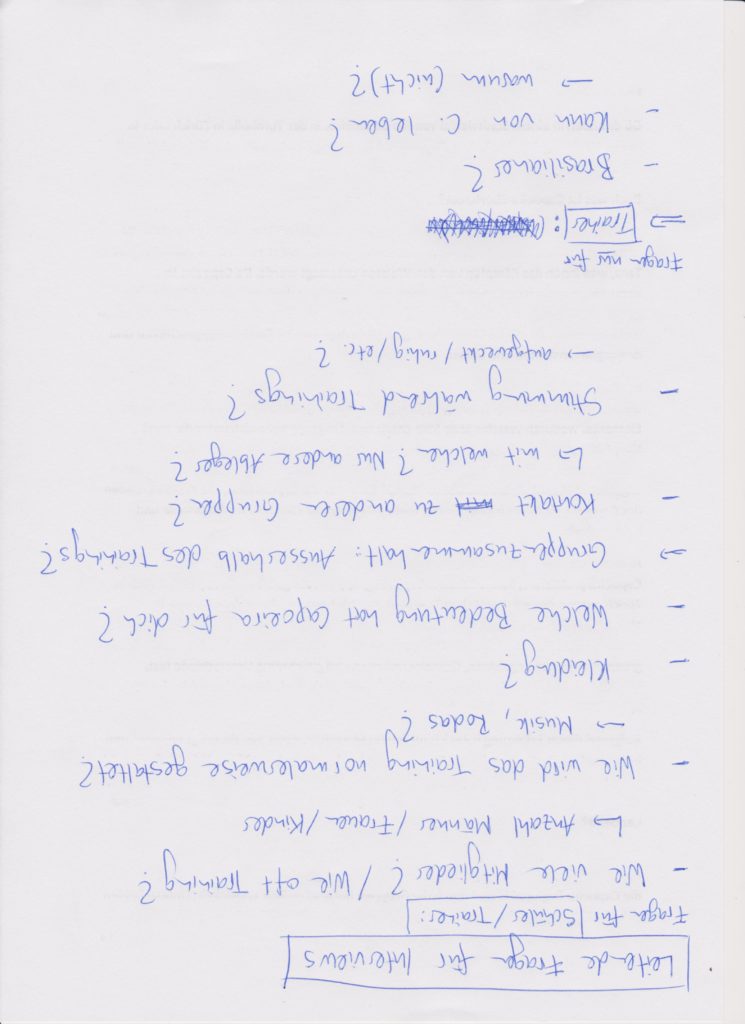 Leitende Fragen für Interviews
Fragen für Schüler/Trainer:
- Wie viele Mitglieder? / Wie oft Training?
↳ Anzahl Männer/Frauen/Kinder
- Wie wird das Training normalerweise gestaltet?
→ Musik, Rodas?
- Kleidung?
- Welche Bedeutung hat Capoeira für dich?
→ Gruppenzusammenhalt: Ausserhalb des Trainings?
- Kontakt zu anderen Gruppen?
↳ mit welchen? Nur andere Ableger?
- Stimmung während Trainings?
→ aufgeweckt/ruhig/etc.?
Fragen nur für
⇒ Trainer:
- Brasilianer?
- Kann von C. leben?
→ warum (nicht)?